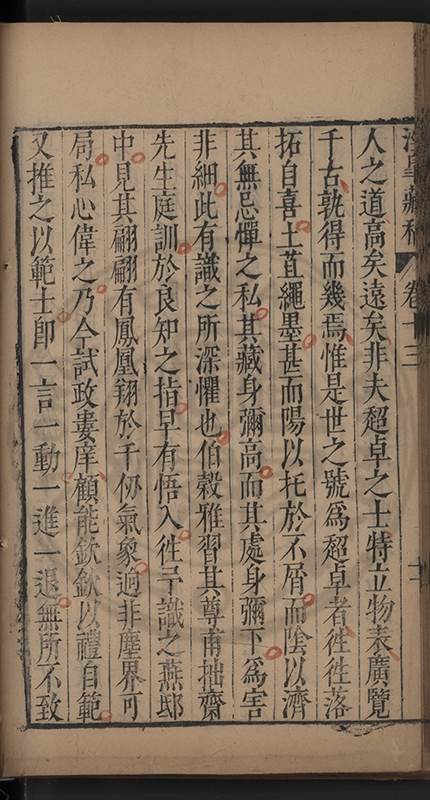 淫皐藏稿 卷十三 十一
人之道高矣遠矣非夫超卓之士特立物表廣覽
千古孰得而幾焉惟是世之號爲超卓者徃徃落
拓自喜土苴繩墨甚而陽以托於不屑而陰以濟
其無忌憚之私其藏身彌高而其處身彌下爲害
非細此有識之所深懼也伯穀雅習其尊甫拙齋
先生庭訓於良知之指早有悟入徃予識之燕邸
中見其翩翩有鳳凰翔於千仞氣象逈非塵界可
局私心偉之乃今試政婁庠顧能欽欽以禮自範
又推之以範士卽一言一動一進一退無所不致